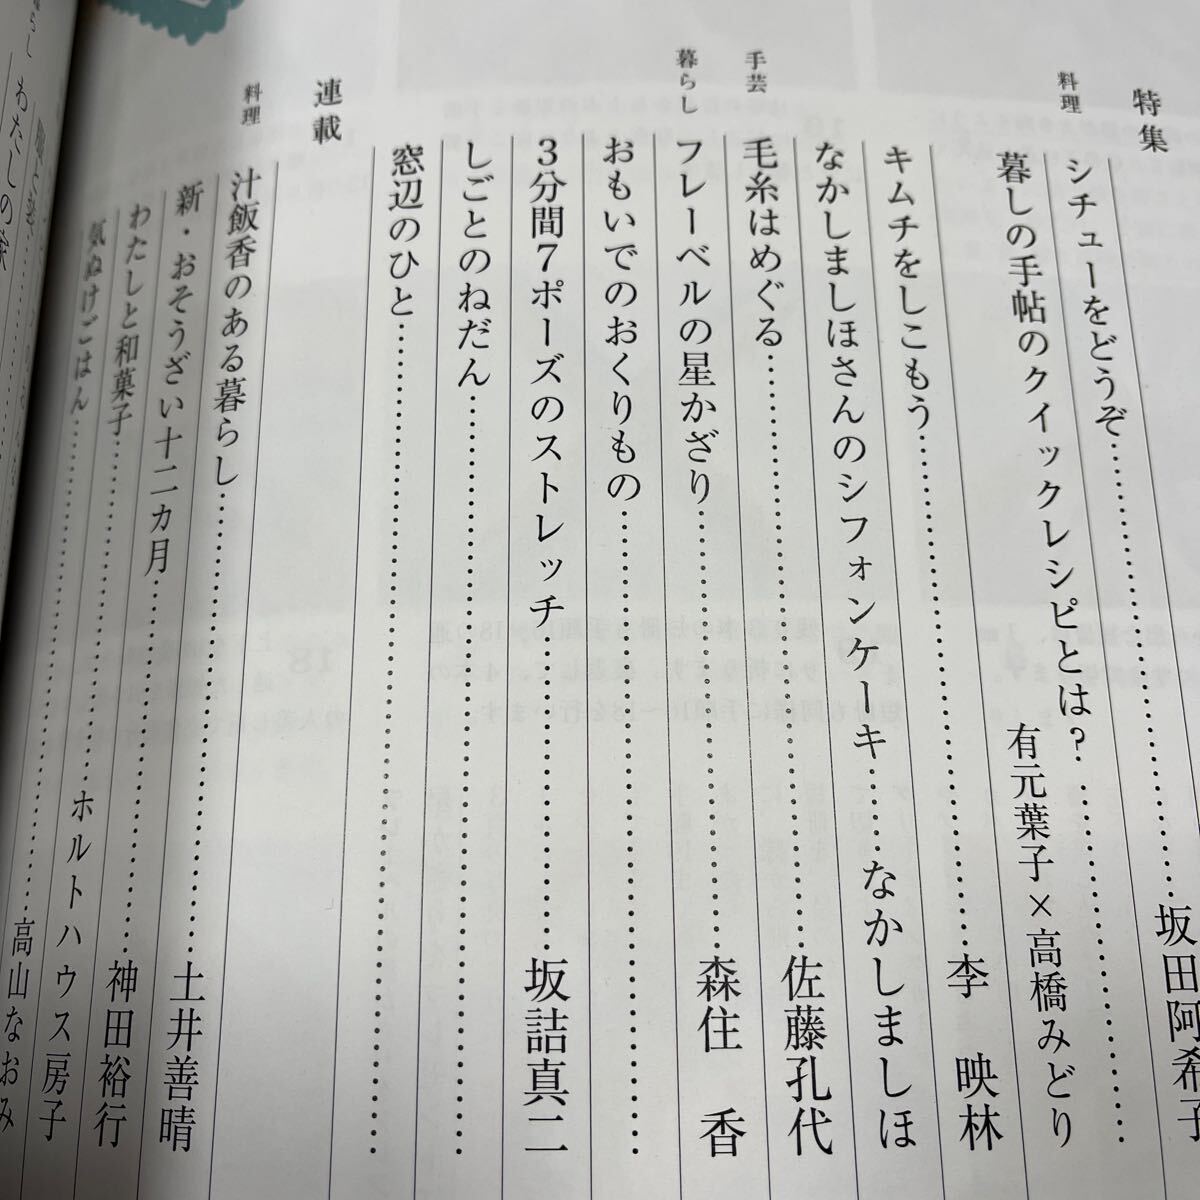 特集
料理
シチューをどうぞ……坂田阿希子
暮しの手帖のクイックレシピとは？ 有元葉子×高橋みどり
キムチをしこもう……李 映林
なかしましほさんのシフォンケーキ……なかしましほ
手芸
毛糸はめぐる……佐藤孔代
暮らし
フレーベルの星かざり……森住 香
おもいでのおくりもの……
3分間7ポーズのストレッチ……坂詰真二
しごとのねだん……
窓辺のひと……
連載
料理
汁飯香のある暮らし……土井善晴
新・おそうざい十二カ月……神田裕行
わたしと和菓子……ホルトハウス房子
気ぬけごはん……高山なおみ
暮らし
わたしの